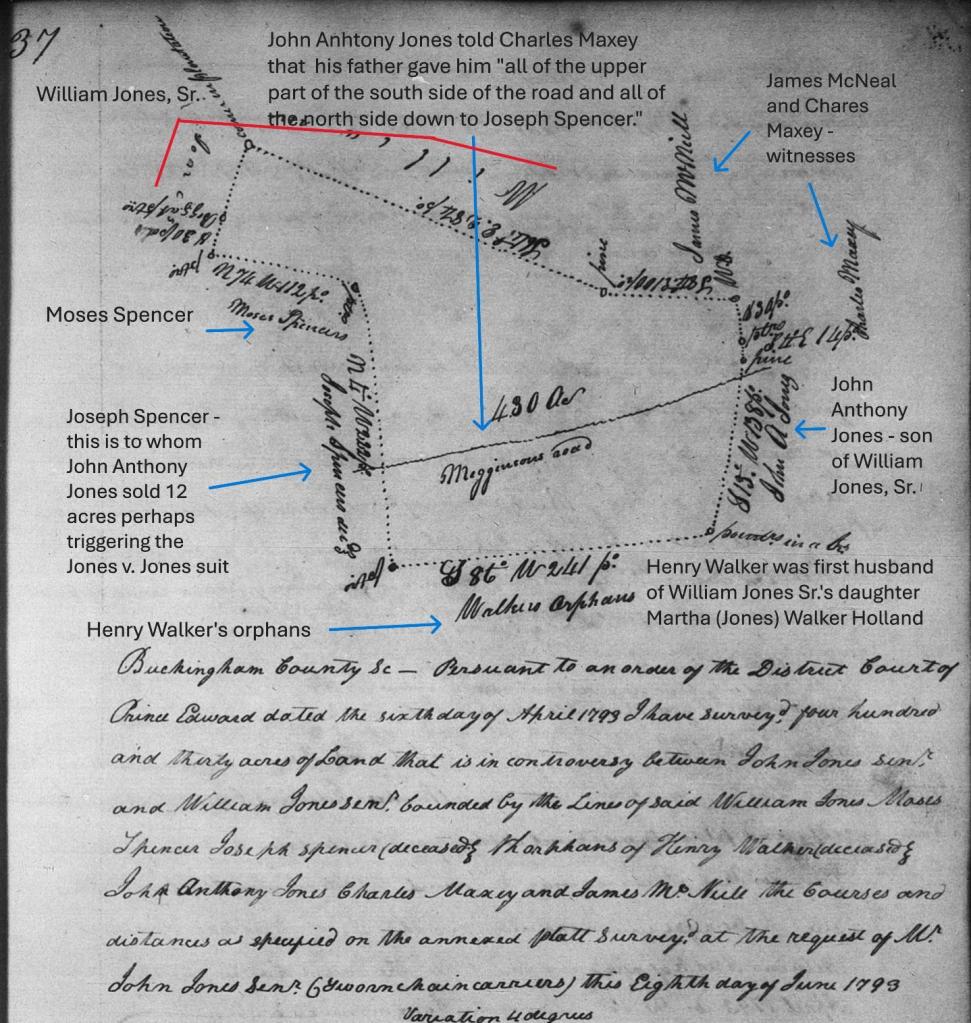 37
John Anhtony Jones told Charles Maxey
that his father gave him "all of the upper
part of the south side of the road and all of
the north side down to Joseph Spencer."
William Jones, Sr.
James McNeal
and Chares
Maxey -
witnesses
James McNeill
Charles Maxey
pine
Moses Spencer
Moses Spencers
430 Ac
Megginsons road
Joseph Spencer -
this is to whom
John Anthony
Jones sold 12
acres perhaps
triggering the
Jones v. Jones suit
John
Anthony
Jones - son
of William
Jones, Sr.
S 4 E 14 po
pine
S 86° W 241 po
Walkers Orphans
Henry Walker was first husband
of William Jones Sr.'s daughter
Martha (Jones) Walker Holland
Henry Walker's orphans
Buckingham County Sc — Persuant to an order of the District Court of
Prince Edward dated the sixth day of April 1793 I have survey.d four hundred
and thirty acres of Land that is in controversy between John Jones sen.r
and William Jones sen.r bounded by the Lines of said William Jones Moses
Spencer Joseph spencer (deceased) & th orphans of Henry Walker (deceased) &
John Anthony Jones Charles Maxey and James Mc Neill the Courses and
distances as specified on the annexed platt survey.d at the request of M.r
John Jones Sen.r (Sworn chain carriers) this Eighth day of June 1793
Variation 4 degrees